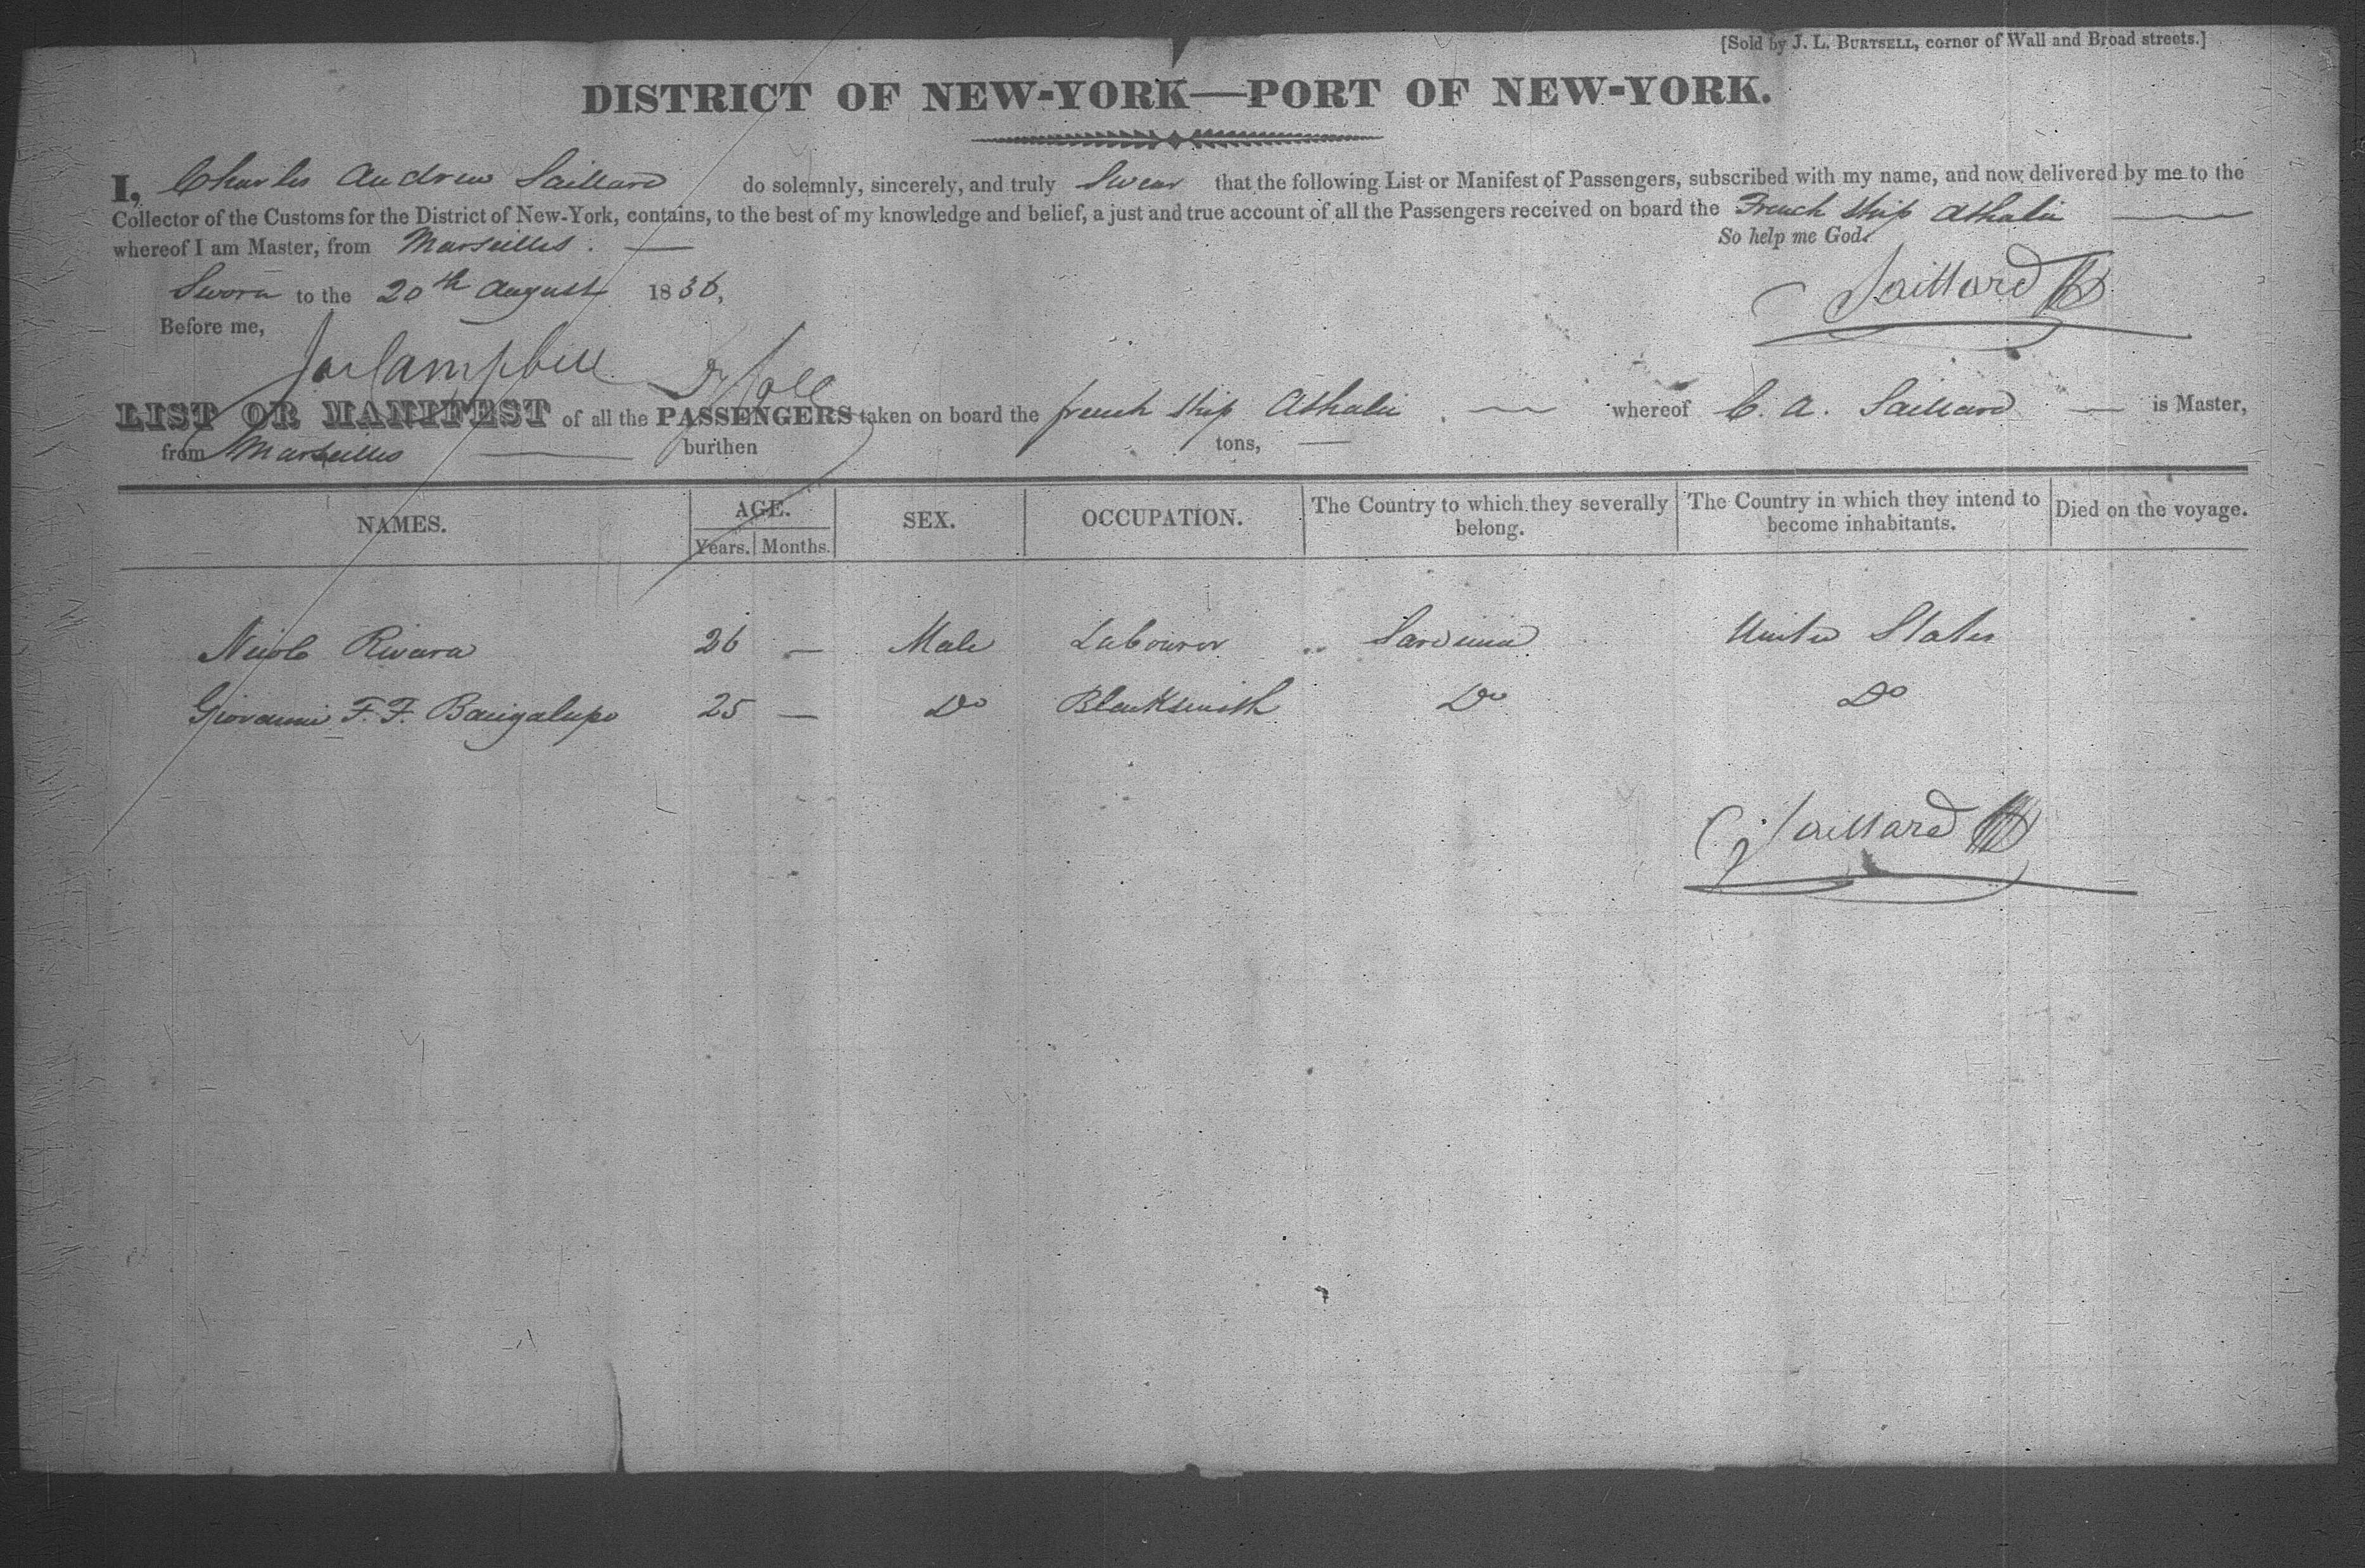 [Sold by J. L. BURTSELL, corner of Wall and Broad streets.]
DISTRICT OF NEW-YORK—PORT OF NEW-YORK.
I, Charles Andrew Saillard do solemnly, sincerely, and truly Swear that the following List or Manifest of Passengers, subscribed with my name, and now delivered by me to the
Collector of the Customs for the District of New-York, contains, to the best of my knowledge and belief, a just and true account of all the Passengers received on board the French Ship Athalie
whereof I am Master, from Marseilles. So help me God.
Sworn to the 20th August 1836,
Saillard
Before me,
Campbell
LIST OR MANIFEST of all the PASSENGERS taken on board the french ship Athalie whereof C. A. Saillard is Master,
from Marseilles burthen tons,
NAMES. AGE. Years. Months. SEX. OCCUPATION. The Country to which they severally belong. The Country in which they intend to become inhabitants. Died on the voyage.
Nicolo Rivara 26 — Male Labourer Sardinia United States
Giovanni F. F. Bacigalupo 25 — Do Blacksmith Do Do
Saillard